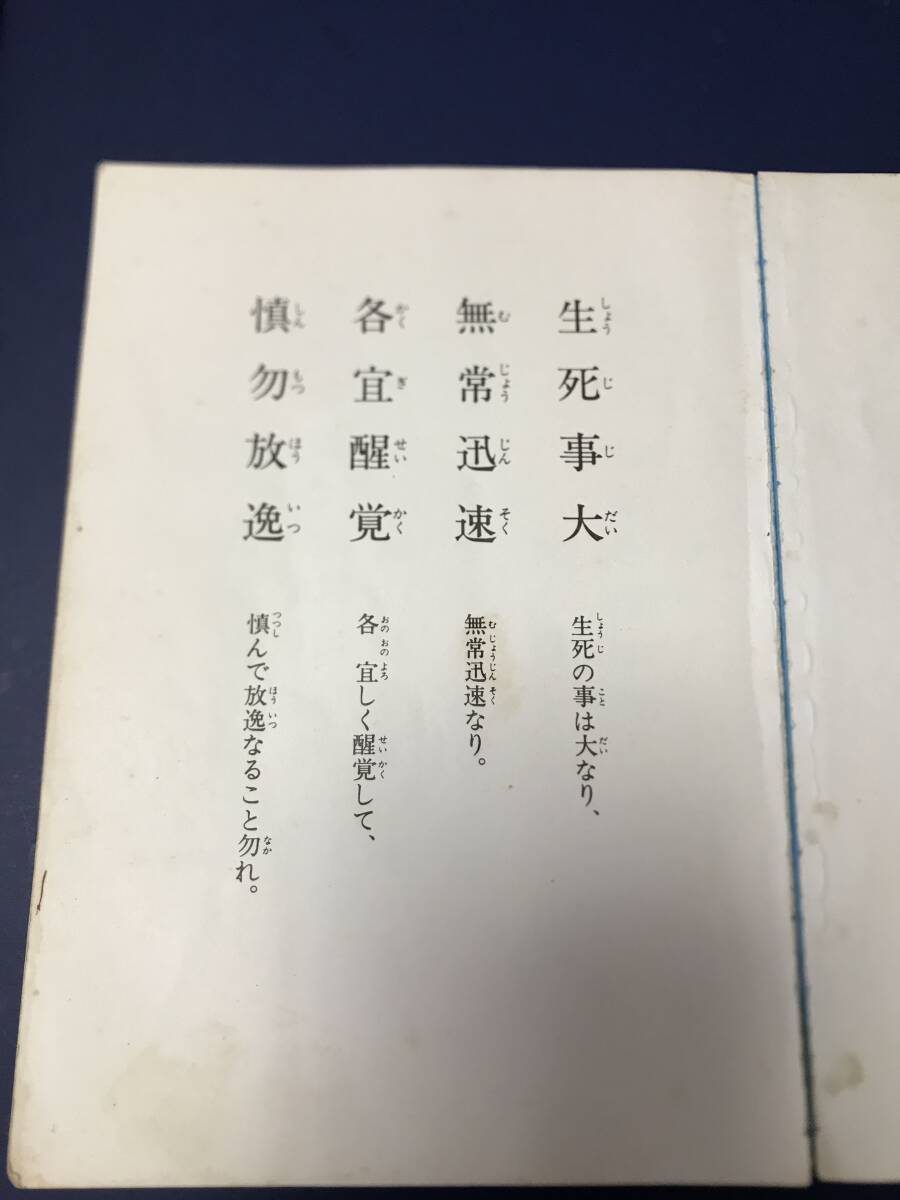 生死事大
生死の事は大なり、
無常迅速
無常迅速なり。
各宜醒覚
各宜しく醒覚して、
慎勿放逸
慎んで放逸なること勿れ。